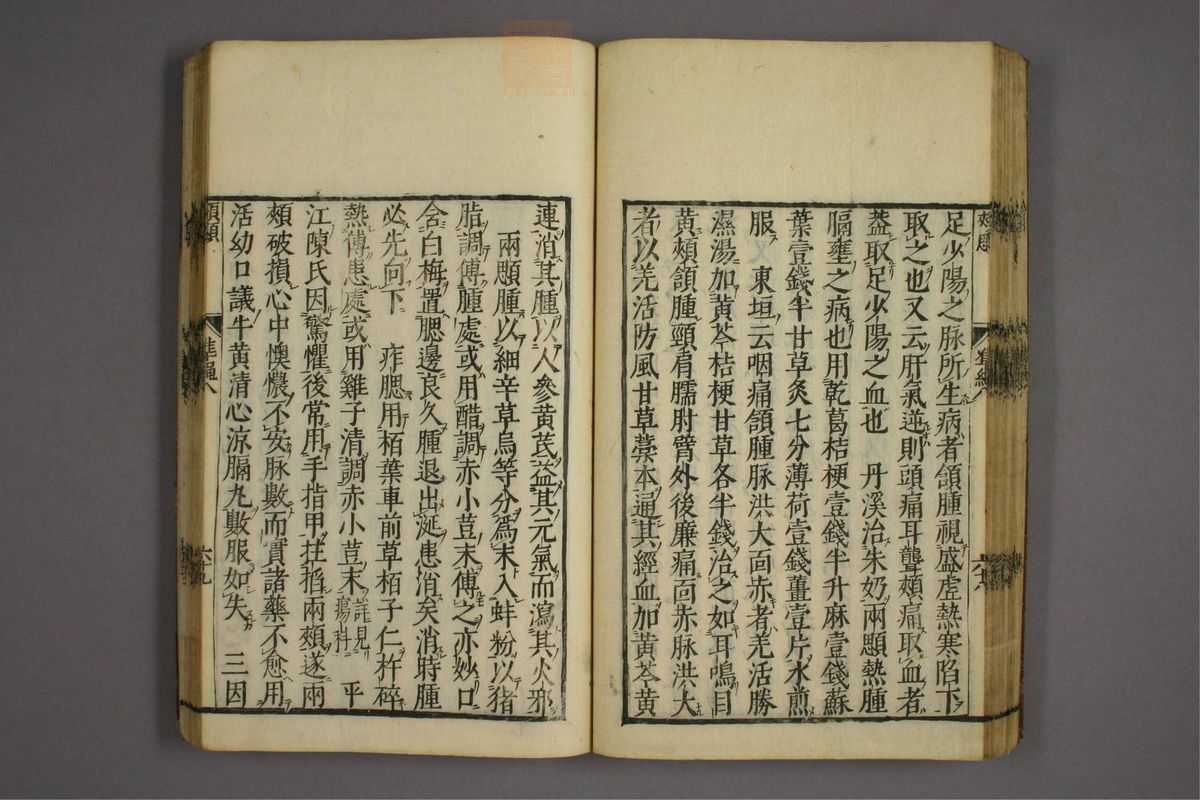 足少陽之脉所生病者頷腫視盛虛熱寒陷下
取之也又云肝氣逆則頭痛耳聾頰痛取血者
蓋取足少陽之血也　丹溪治朱奶兩顋熱腫
膈壅之病也用乾葛桔梗壹錢半升麻壹錢蘇
葉壹錢半甘草炙七分薄荷壹錢薑壹片水煎
服　東垣云咽痛頷腫脉洪大面赤者羌活勝
濕湯加黃芩桔梗甘草各半錢治之如耳鳴目
黃頰頷腫頸肩臑肘臂外後廉痛面赤脉洪大
者以羌活防風甘草藁本通其經血加黃芩黃
連消其腫以人參黃芪益其元氣而瀉其火邪
兩顋腫以細辛草烏等分爲末入蚌粉以猪
脂調傅腫處或用醋調赤小荳末傅之亦妙口
含白梅置腮邊良久腫退出涎患消矣消時腫
必先向下　痄腮用栢葉車前草栢子仁杵碎
熱傅患處或用雞子清調赤小荳末詳見瘍科　平
江陳氏因驚懼後常用手指甲拄掐兩頰遂兩
頰破損心中懊憹不安脉數而實諸藥不愈用
活幼口議牛黃清心涼膈丸數服如失　三因
準繩八
六十九